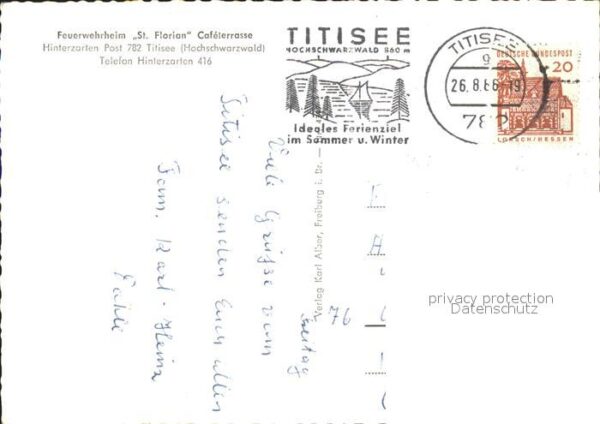 Feuerwehrheim „St. Florian" Caféterrasse
Hinterzarten Post 782 Titisee (Hochschwarzwald)
Telefon Hinterzarten 416
TITISEE
HOCHSCHWARZWALD 860 m
Ideales Ferienziel
im Sommer u. Winter
TITISEE
g
26.8.66-19
782
DEUTSCHE BUNDESPOST
20
LORSCH/HESSEN
Verlag Karl Alber, Freiburg i. Br.
Viele Grüsse vom
Titisee senden Euch allen
Fam. Karl-Heinz
76
privacy protection
Datenschutz